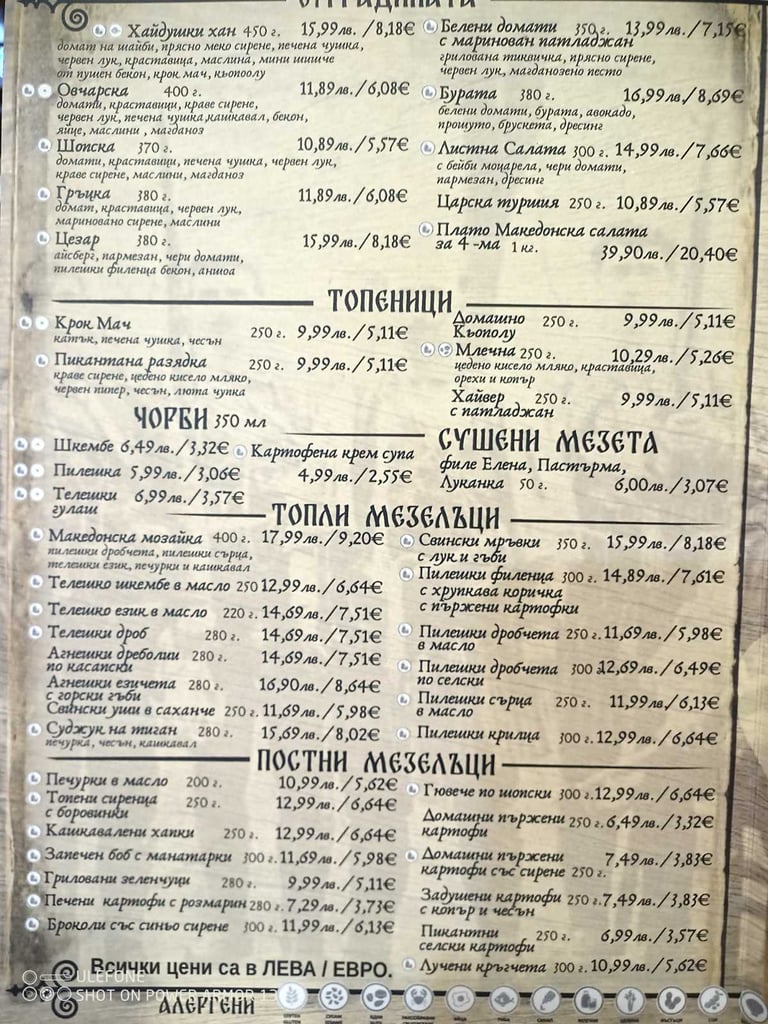 Хайдушки хан 450 г. 15,99лв./8,18€
домат на шайби, прясно меко сирене, печена чушка,
червен лук, краставица, маслина, мини шишче
от пушен бекон, крок мач, кьопоолу
Овчарска 400 г. 11,89лв./6,08€
домати, краставици, краве сирене,
червен лук, печена чушка,кашкавал, бекон,
яйце, маслини , магданоз
Шопска 370 г. 10,89лв./5,57€
домати, краставици, печена чушка, червен лук,
краве сирене, маслини, магданоз
Гръцка 380 г. 11,89лв./6,08€
домат, краставица, червен лук,
мариновано сирене, маслини
Цезар 380 г. 15,99лв./8,18€
айсберг, пармезан, чери домати,
пилешки филенца бекон, аншоа
Белени домати 350 г. 13,99лв./7,15€
с маринован патладжан
грилована тиквичка, прясно сирене,
червен лук, магданозено песто
Бурата 380 г. 16,99лв./8,69€
белени домати, бурата, авокадо,
прошуто, брускета, дресинг
Листна Салата 300 г. 14,99лв./7,66€
с бейби моцарела, чери домати,
пармезан, дресинг
Царска туршия 250 г. 10,89лв./5,57€
Плато Македонска салата
за 4 -ма 1 кг. 39,90лв./20,40€
ТОПЕНИЦИ
Крок Мач 250 г. 9,99лв./5,11€
катък, печена чушка, чесън
Пикантана разядка 250 г. 9,99лв./5,11€
краве сирене, цедено кисело мляко,
червен пипер, чесън, люта чупка
Домашно 250 г. 9,99лв./5,11€
Кьополу
Млечна 250 г. 10,29лв./5,26€
цедено кисело мляко, краставица,
орехи и копър
Хайвер 250 г. 9,99лв./5,11€
с патладжан
ЧОРБИ 350 мл
Шкембе 6,49лв./3,32€
Пилешка 5,99лв./3,06€
Телешки 6,99лв./3,57€
гулаш
Картофена крем супа
4,99лв./2,55€
СУШЕНИ МЕЗЕТА
филе Елена, Пастърма,
Луканка 50 г. 6,00лв./3,07€
ТОПЛИ МЕЗЕЛЪЦИ
Македонска мозайка 400 г. 17,99лв./9,20€
пилешки дробчета, пилешки сърца,
телешки език, печурки и кашкавал
Телешко шкембе в масло 250 12,99лв./6,64€
Телешко език в масло 220 г. 14,69лв./7,51€
Телешки дроб 280 г. 14,69лв./7,51€
Агнешки дреболии 280 г. 14,69лв./7,51€
по касапски
Агнешки езичета 280 г. 16,90лв./8,64€
с горски гъби
Свински уши в саханче 250 г. 11,69лв./5,98€
Суджук на тиган 280 г. 15,69лв./8,02€
печурка, чесън, кашкавал
Свински мръвки 350 г. 15,99лв./8,18€
с лук и гъби
Пилешки филенца 300 г. 14,89лв./7,61€
с хрупкава коричка
с пържени картофки
Пилешки дробчета 250 г. 11,69лв./5,98€
в масло
Пилешки дробчета 300 г. 12,69лв./6,49€
по селски
Пилешки сърца 250 г. 11,99лв./6,13€
в масло
Пилешки крилца 300 г. 12,99лв./6,64€
ПОСТНИ МЕЗЕЛЪЦИ
Печурки в масло 200 г. 10,99лв./5,62€
Топени сиренца 250 г. 12,99лв./6,64€
с боровинки
Кашкавалени хапки 250 г. 12,99лв./6,64€
Запечен боб с манатарки 300 г. 11,69лв./5,98€
Гриловани зеленчуци 280 г. 9,99лв./5,11€
Печени картофи с розмарин 280 г. 7,29лв./3,73€
Броколи със синьо сирене 300 г. 11,99лв./6,13€
Гювече по шопски 300 г. 12,99лв./6,64€
Домашни пържени 250 г. 6,49лв./3,32€
картофи
Домашни пържени 7,49лв./3,83€
картофи със сирене 250 г.
Задушени картофи 250 г. 7,49лв./3,83€
с копър и чесън
Пикантни 250 г. 6,99лв./3,57€
селски картофи
Лучени кръгчета 300 г. 10,99лв./5,62€
Всички цени са в ЛЕВА / ЕВРО.
ULEFONE
SHOT ON POWER ARMOR 13
АЛЕРГЕНИ